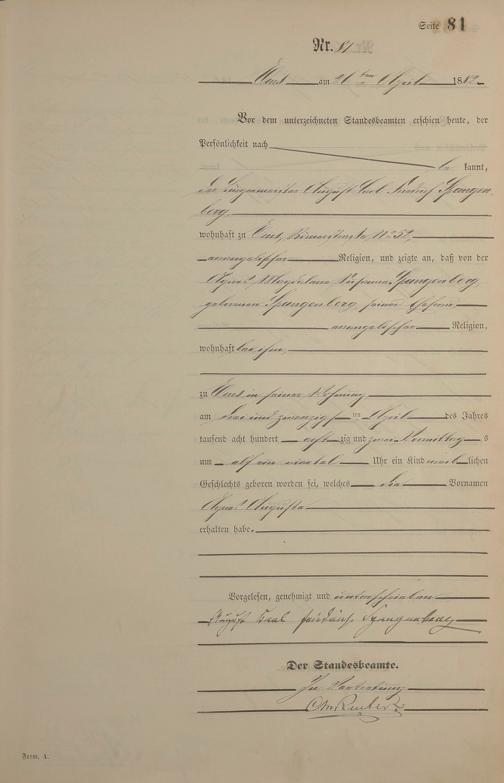 Seite 81
Nr. 81
Ems am 26 ten April 1882
Vor dem unterzeichneten Standesbeamten erschien heute, der
Persönlichkeit nach
be kannt,
der August Carl Friedrich Spangen
berg,
wohnhaft zu Ems, No 52,
evangelischer Religion, und zeigte an, daß von der
Agnes Magdalena Susanna Spangenberg
geborenen Spangenberg, seiner Ehefrau
evangelischer Religion,
wohnhaft bei ihm,
zu Ems in seiner Wohnung
am zwanzigsten April des Jahres
tausend acht hundert acht zig und zwei Vormittag s
um elf ein viertel Uhr ein Kind weib lichen
Geschlechts geboren worden sei, welches die Vornamen
Agnes Augusta
erhalten habe.
Vorgelesen, genehmigt und unterschrieben
August Carl Friedrich Spangenberg
Der Standesbeamte.
In Vertretung
Form. A.